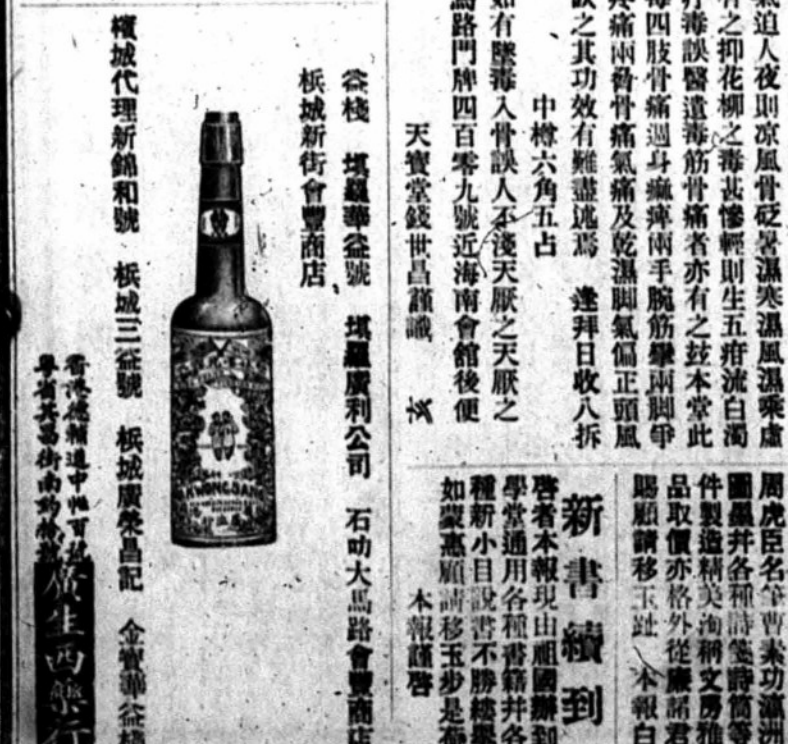 氣迫人夜則凉風骨砭暑濕寒濕風濕乘虛
有之抑花柳之毒甚慘輕則生五疳流白濁
疔毒誤醫遺毒筋骨痛者亦有之玆本堂此
毒四肢骨痛週身痲痺兩手腕筋攣兩脚爭
疼痛兩脅骨痛氣痛及乾濕脚氣偏正頭風
飲之其功效有難盡述焉 逢拜日收八折
中樽六角五占
如有墜毒入骨誤人不淺天厭之天厭之
馬路門牌四百零九號近海南會館後便
天寶堂錢世昌謹識
周虎臣名筆曹素功瀛洲
圖墨并各種詩箋詩筒等
件製造精美洵稱文房雅
品取價亦格外從廉諸君
賜顧請移玉趾 本報白
新書續到
啓者本報現由祖國辦到
學堂通用各種書籍并各
種新小目說書不勝縷舉
如蒙惠顧請移玉步是荷
本報謹啓
益棧 壩羅華益號 壩羅廣利公司 石叻大馬路會豐商店
梹城新街會豐商店
KWONG SANG
檳城代理新錦和號 梹城三益號 梹城廣榮昌記 金寶華益棧
香港德輔道中
粤省其昌街南約
廣生西藥行